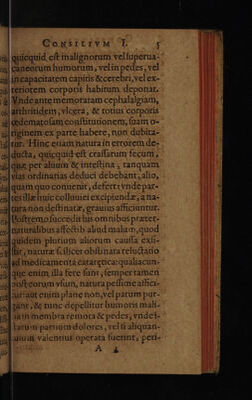 CONSILIVM I. 5
quicquid est malignorum vel superua-
caneorum humorum, vel in pedes, vel
in capacitatem capitis & cerebri, vel ex-
teriorem corporis habitum deponat.
Vnde ante memoratam cephalalgiam,
arthritidem, vlcera, & totius corporis
œdematosam constitutionem, suam o-
riginem ex parte habere, non dubita-
tur. Hinc enim natura in errorem de-
ducta, quicquid est crassarum fecum,
quæ per aluum & intestina, tanquam
vias ordinarias deduci debebant, aliò,
quam quo conuenit, defert: vnde par-
tes illæ huic colluuiei excipiendæ, a na-
tura non destinatæ, grauius afficiuntur.
Postremo succedit his omnibus præter-
naturalibus affectib. aliud malum, quod
quidem plurium aliorum caussa exsi-
stit, naturæ scilicet obstinata reluctatio
ad medicamenta catartica: qualiacun-
que enim illa fere sunt, semper tamen
post eorum vsum, natura pessime affici-
tur: aut enim plane non, vel parum pur-
gant, & tunc depellitur humoris mali-
in membra remota & pedes, vnde
partium dolores, vel si aliquan-
valentius operata fuerint, peri-
A